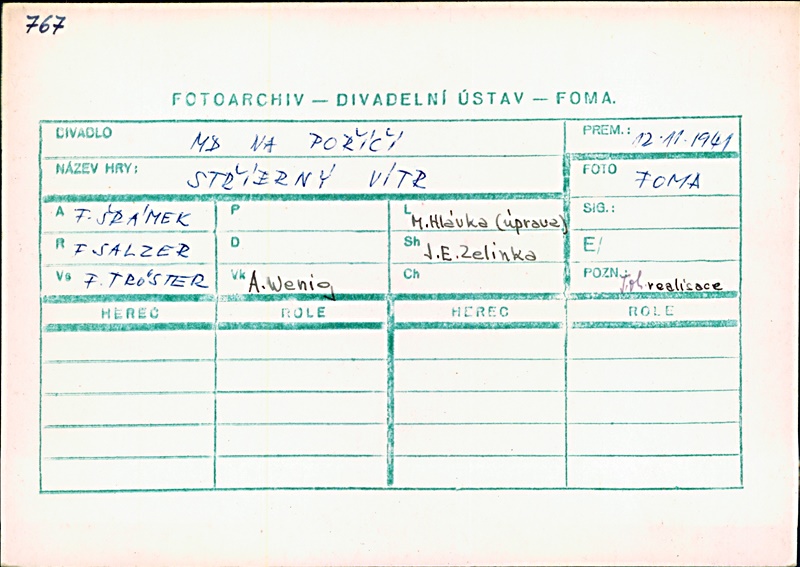 767
FOTOARCHIV — DIVADELNÍ ÚSTAV — FOMA.
DIVADLO MD NA POŘÍČÍ PREM.: 12.11.1941
NÁZEV HRY: STŘÍBRNÝ VÍTR FOTO FOMA
A F. ŠRÁMEK P L M. Hlávka (úprava) SIG.:
R F. SALZER D Sh J. E. Zelinka E/
Vs F. TRÖSTER Vk A. Wenig Ch POZN.: realisace
HEREC ROLE HEREC ROLE